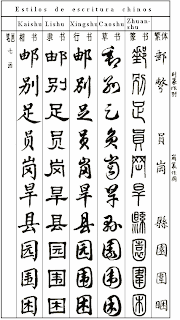 Estilos de escritura chinos
Kaishu Lishu Xingshu Caoshu Zhuan-shu
楷书 隶书 行书 草书 篆书 繁体
七画
邮 邮 邮 邮 郵 郵
别 别 别 别 别
足 足 足 足 足
员 员 员 员 員 員
岗 岗 岗 岗 岗 崗
旱 旱 旱 旱 旱
县 县 县 县 縣 縣
园 园 园 园 園 園
围 围 围 围 圍 圍
困 困 困 困 困 睏